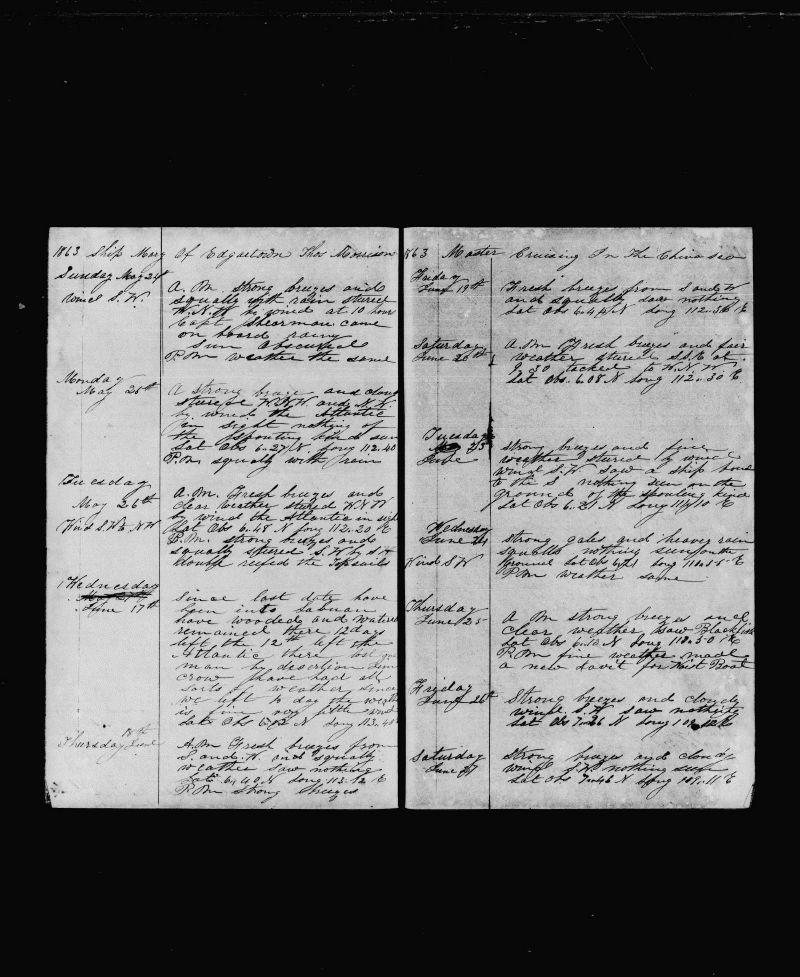 1863 Ship Mary Of Edgartown Thos Morrison
Sunday May 24
Wind S. W.
A. M. strong breezes and
squally with rain stured
W. N. W by wind at 10 hours
Capt Shearman came
on board rainy
Sun Obscured
P. M weather the same
Monday
May 25th
A strong braze and cloudy
stured W. N. W and N. W
by wind the Atlantic
in sight nothing of
the spouting kind seen
Lat Obs 6-27 N long 112.40
P. M squally with rain
Tuesday
May 26th
Wind S. W to N W
A. M. Fresh breezes and
clear weather stured W. N W
by wind the Atlantic in sigh
Lat Obs 6.48 N long 112-20 E
P. M. strong breezes and
squally steered S. W by S
double reefed the Topsails
Wednesday
June 17th
Since last date have
been into Labuan
have wooded and Watered
remained there 12 days
left the 12th left the
Atlantic there lost
man by desertion
crow have had all
sorts of weather since
we left to day the weath
is fine very little wind
Lat Obs N long 113.40
Thursday June 18th
A. M Fresh breezes from
S. and W. and squally
weather saw nothing
Lat 6.40 N Long 113-12 E
P. M Strong breezes
1863 Master Cruising In The China sea
Friday
June 19th
Fresh breezes from S and W
and squally saw nothing
Lat Obs 6.44 N long 112.36 E
Saturday
June 20th
A. M Fresh breezes and fair
weather stured S. S. E at
9 30 tacked to W. N. W.
Lat Obs. 6.08 N long 112.30 E
Tuesday
June 23
strong breezes and fine
weather stured by wind
wind S. W saw a ship bound
to the S nothing seen on the
ground of the spouting kind
Lat Obs 6.21 N Long 111/10 E
Wednesday
June 24
Wind S W
strong gales and heavy rain
squalls nothing seen on the
ground Lat Obs 6.21 long 110.55 E
P. M weather same
Thursday
June 25
A M strong breezes and
clear weather saw Blackfish
Lat Obs N long 110.50 E
P. M fine weather made
a new davit for Wist Boat
Friday
June 26th
Strong breezes and cloudy
wind S. W saw nothing
Lat Obs 7.26 N long 109 E
Saturday
June 27
Strong breezes and cloudy
wind S. W. nothing seen
Lat Obs 7.46 N long 109.11 E